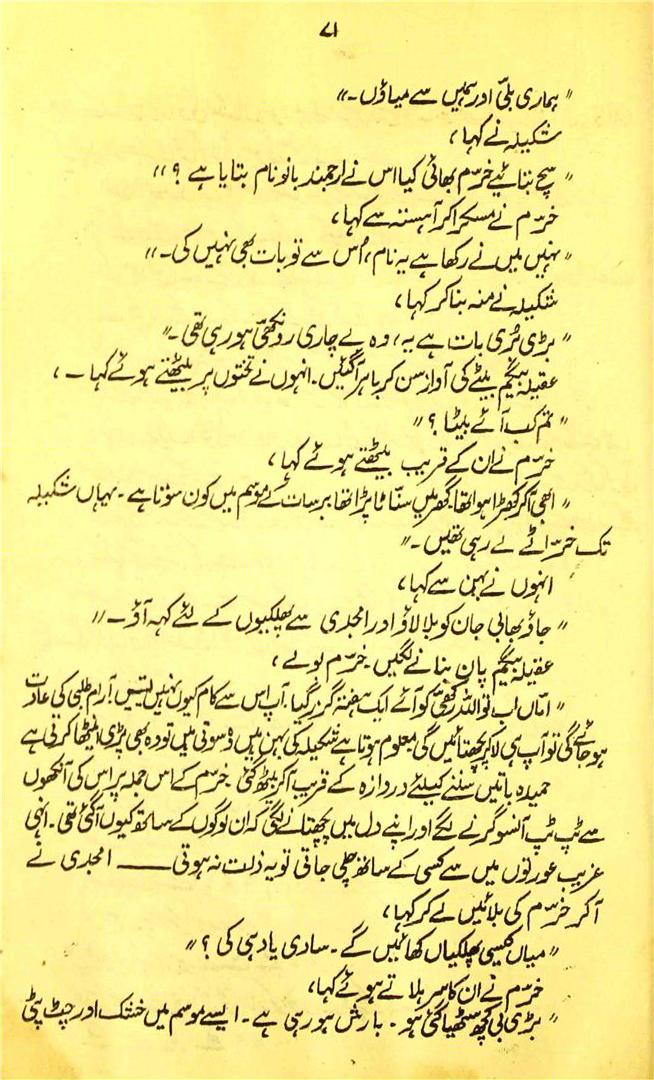 ۷۱
” ہماری بلی اور ہمیں سے میاؤں۔“
شکیلہ نے کہا،
” سچ بتائیے خرّم بھائی کیا اس نے ارجمند بانو نام بتایا ہے ؟“
خرّم نے مسکرا کر آہستہ سے کہا،
” نہیں میں نے رکھا ہے یہ نام، اُس سے تو بات بھی نہیں کی۔“
شکیلہ نے منہ بنا کر کہا،
” بڑی بُری بات ہے یہ، وہ بے چاری روئنکھی ہو رہی تھی۔“
عقیلہ بیگم بیٹے کی آواز سن کر باہر آگئیں۔ انہوں نے تختوں پر بیٹھتے ہوئے کہا۔،
” تم کب آئے بیٹا ؟“
خرّم نے ان کے قریب بیٹھتے ہوئے کہا،
” ابھی آکر کھڑا ہوا تھا۔ گھر میں سنّاٹا پڑا تھا برسات کے موسم میں کون سوتا ہے۔ یہاں شکیلہ
تک خرّاٹے لے رہی تھیں۔“
انہوں نے بہن سے کہا،
” جاؤ بھابی جان کو بلا لاؤ اور امجدی سے پھلکیوں کے لئے کہہ آؤ۔“
عقیلہ بیگم پان بنانے لگیں۔ خرّم بولے،
” اماں اب تو اللہ رکھی کو آئے ایک ہفتہ گزر گیا۔ آپ اس سے کام کیوں نہیں لیتیں! آرام طلبی کی عادت
ہو جائے گی تو آپ ہی لاکر پچھتائیں گی۔ معلوم ہوتا ہے شکیلہ کی بہن ہیں وہ سوتی ہیں تو وہ بھی پڑی اینٹھا کرتی ہے
حمیدہ باتیں سننے کیلئے دروازہ کے قریب آکر بیٹھ گئی۔ خرّم کے اس جملہ پر اس کی آنکھوں
سے ٹپ ٹپ آنسو گرنے لگے اور اپنے دل میں پچھتانے لگی کہ ان لوگوں کے ساتھ کیوں آگئی تھی۔ انہی
غریب عورتوں میں سے کسی کے ساتھ چلی جاتی تو یہ ذلت نہ ہوتی —— امجدی نے
آکر خرّم کی بلائیں لے کر کہا،
” میاں کیسی پھلکیاں کھائیں گے۔ سادی یا دہی کی ؟“
خرّم نے ان کا سر ہلاتے ہوئے کہا،
” بڑی بی کچھ سٹھیا گئی ہو۔ بارش ہو رہی ہے۔ ایسے موسم میں خشک اور چٹ پٹی